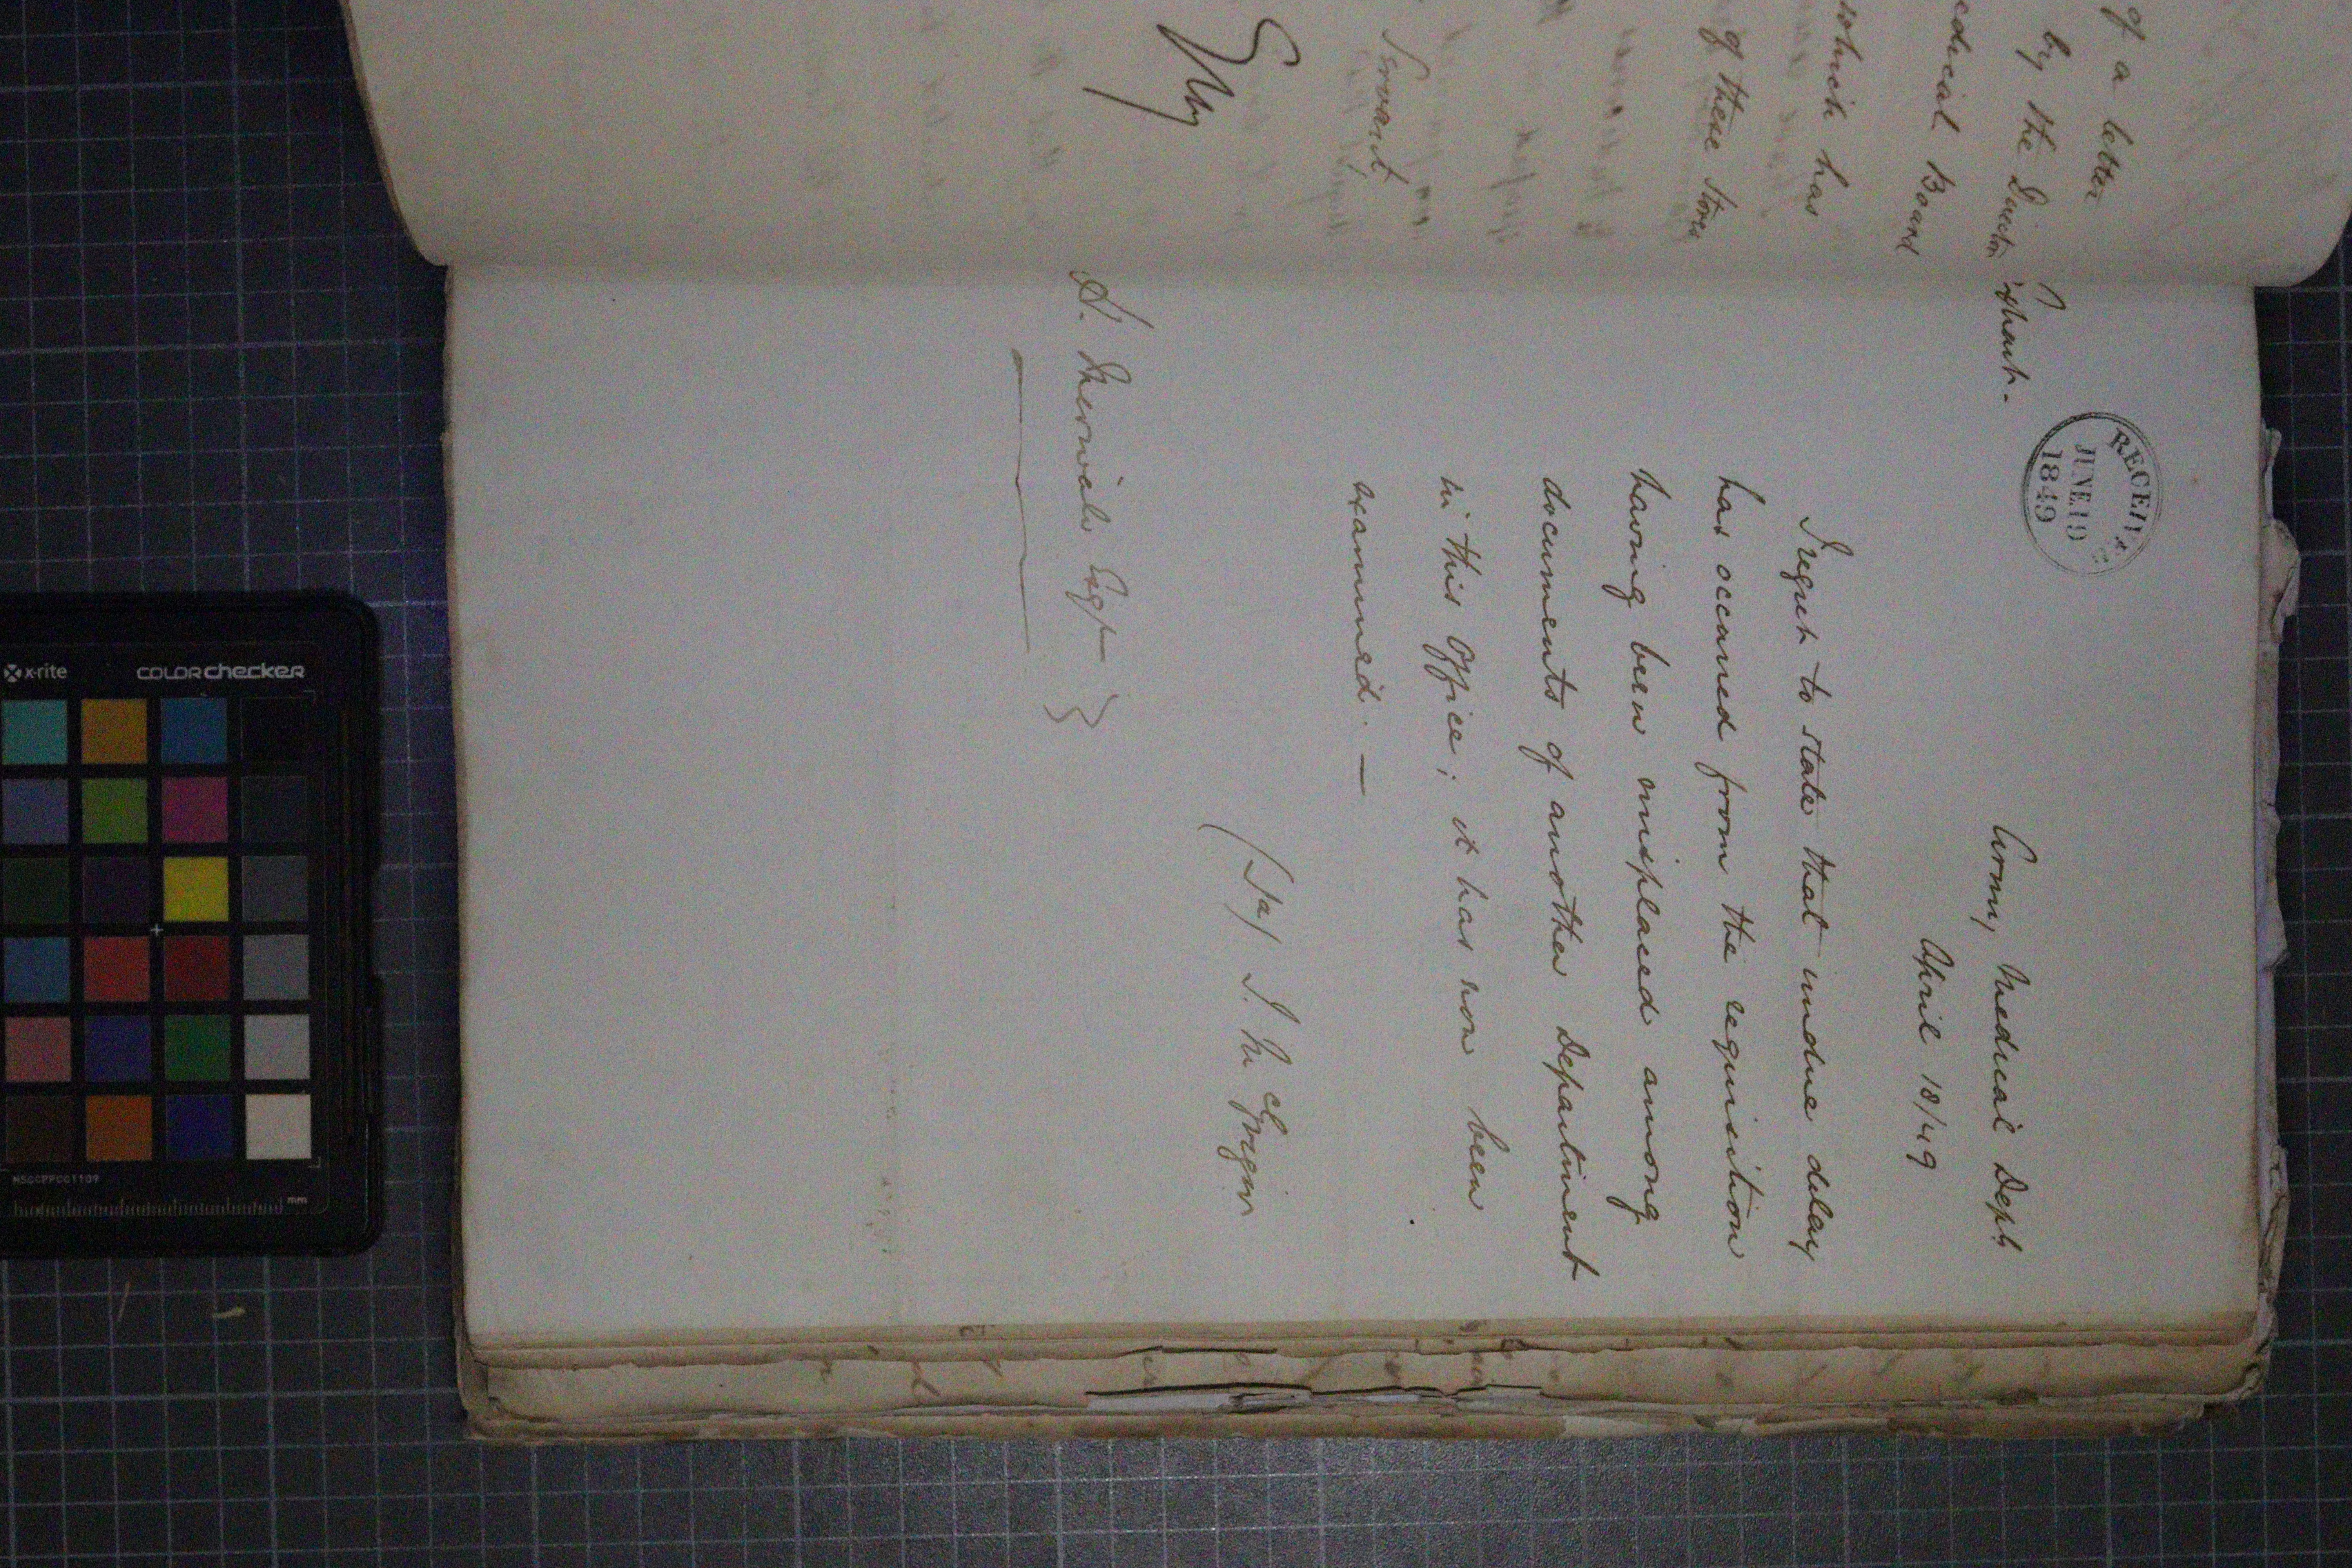 of a letter
by the Director
edical Board
which has
of these stores
Servant,
Extract.
RECEIVED
JUNE 19
1849
Army Medical Dept
April 18/49
I regret to state that undue delay
has occurred from the requisition
having been misplaced among
documents of another Department
in this Office; it has now been
examined. —
(Sd/ J. McGregor
H. Merivale Esqr
x-rite
COLORchecker
MSCCPPCC1109
mm